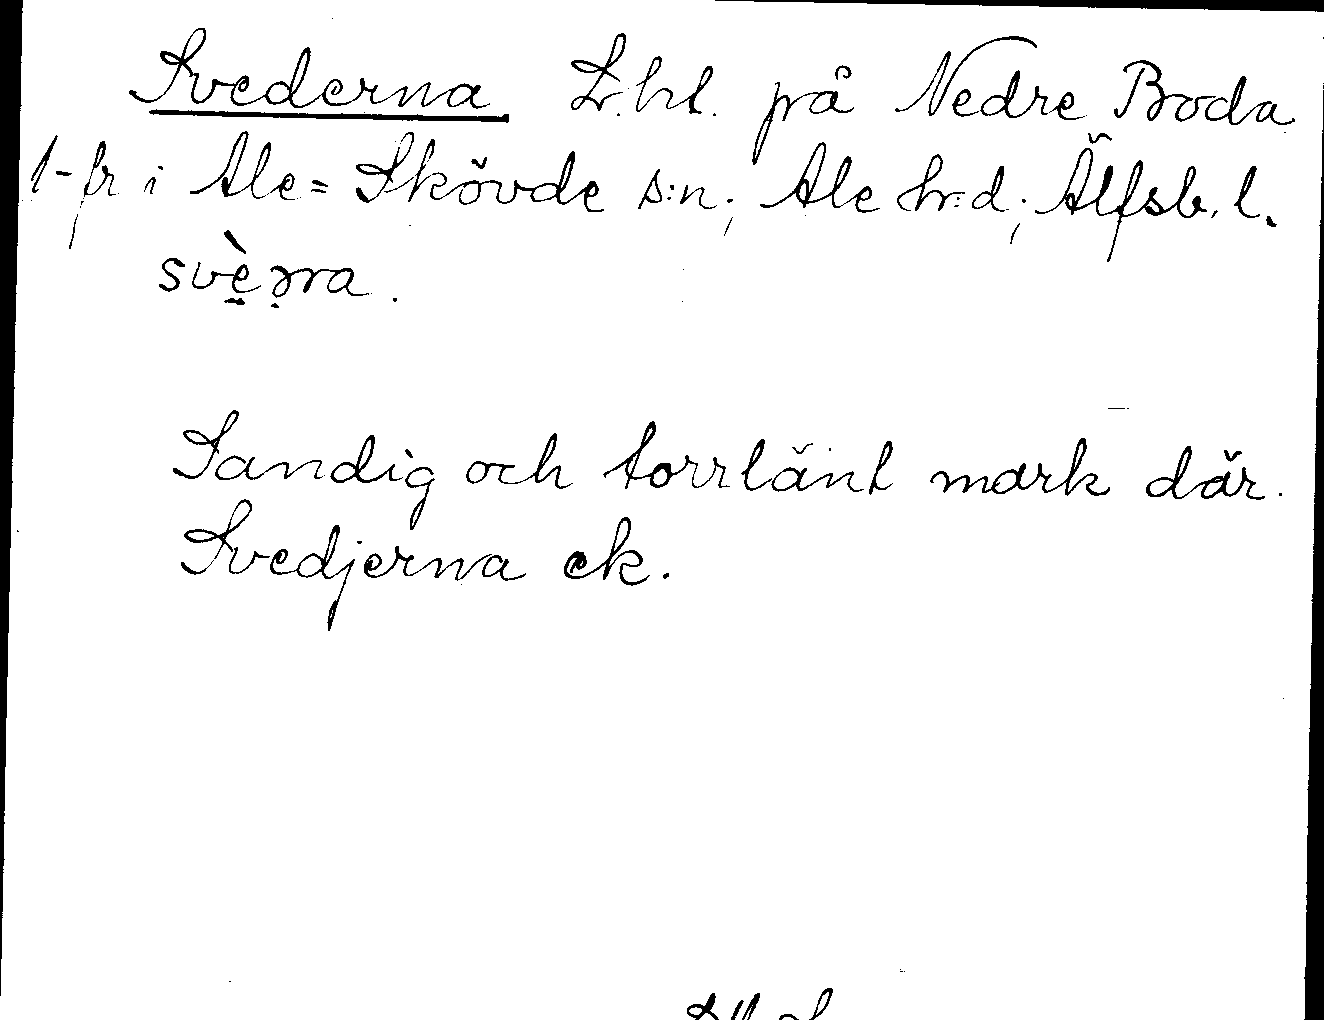 Svederna Lr.hl. på Nedre Boda
1-fr i Ale=Skövde s:n; Ale h:d; Älfsb. l.
svè̱ə̣rra.
Sandig och torrlänt mark där.
Svedjerna ek.